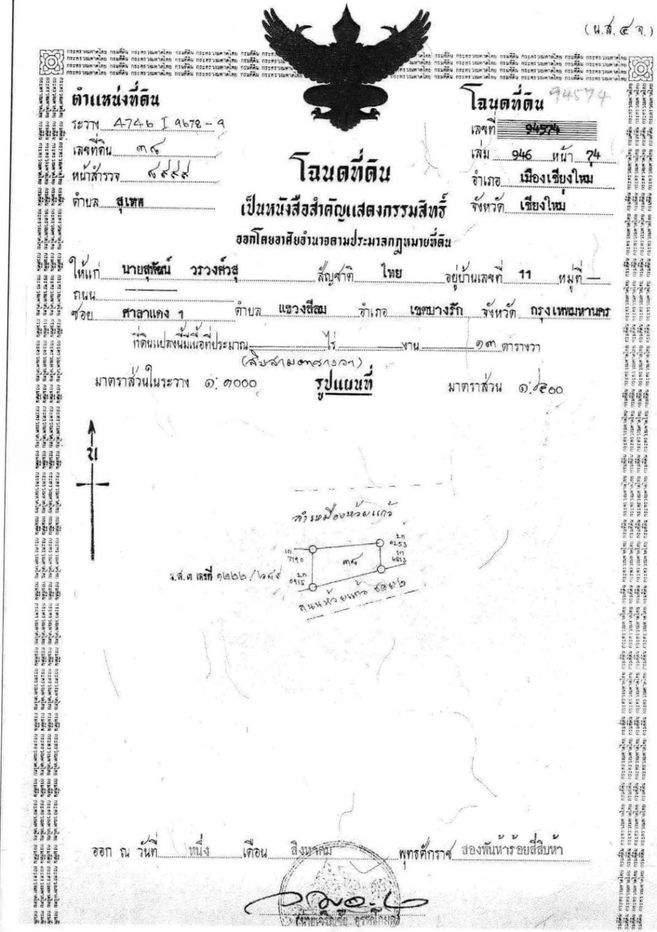 (น.ส. ๔ จ.)
ตำแหน่งที่ดิน
ระวาง 4746 I 9678-9
เลขที่ดิน ๓๘
หน้าสำรวจ ๘๙๙๙
ตำบล สุเทพ
โฉนดที่ดิน 94574
เลขที่ 94574
เล่ม 946 หน้า 74
อำเภอ เมืองเชียงใหม่
จังหวัด เชียงใหม่
โฉนดที่ดิน
เป็นหนังสือสำคัญแสดงกรรมสิทธิ์
ออกโดยอาศัยอำนาจตามประมวลกฎหมายที่ดิน
ให้แก่ นายสุพัฒน์ วรวงศ์วสุ สัญชาติ ไทย อยู่บ้านเลขที่ 11 หมู่ที่ —
ถนน
ซอย ศาลาแดง 1 ตำบล แขวงสีลม อำเภอ เขตบางรัก จังหวัด กรุงเทพมหานคร
ที่ดินแปลงนี้มีเนื้อที่ประมาณ ไร่ งาน ๑๓ ตารางวา
(สิบสามตารางวา)
มาตราส่วนในระวาง ๑:๑๐๐๐ รูปแผนที่ มาตราส่วน ๑:๕๐๐
น
ลำเหมืองห้วยแก้ว
7190
0253
๓๘
0915
ถนนห้วยแก้ว ซอย ๒
ออก ณ วันที่ หนึ่ง เดือน สิงหาคม พุทธศักราช สองพันห้าร้อยสี่สิบห้า